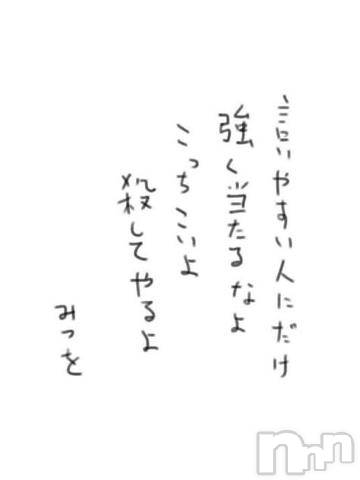 言いやすい人にだけ
強く当たるなよ
こっちこいよ
殺してやるよ
みつを
nnn